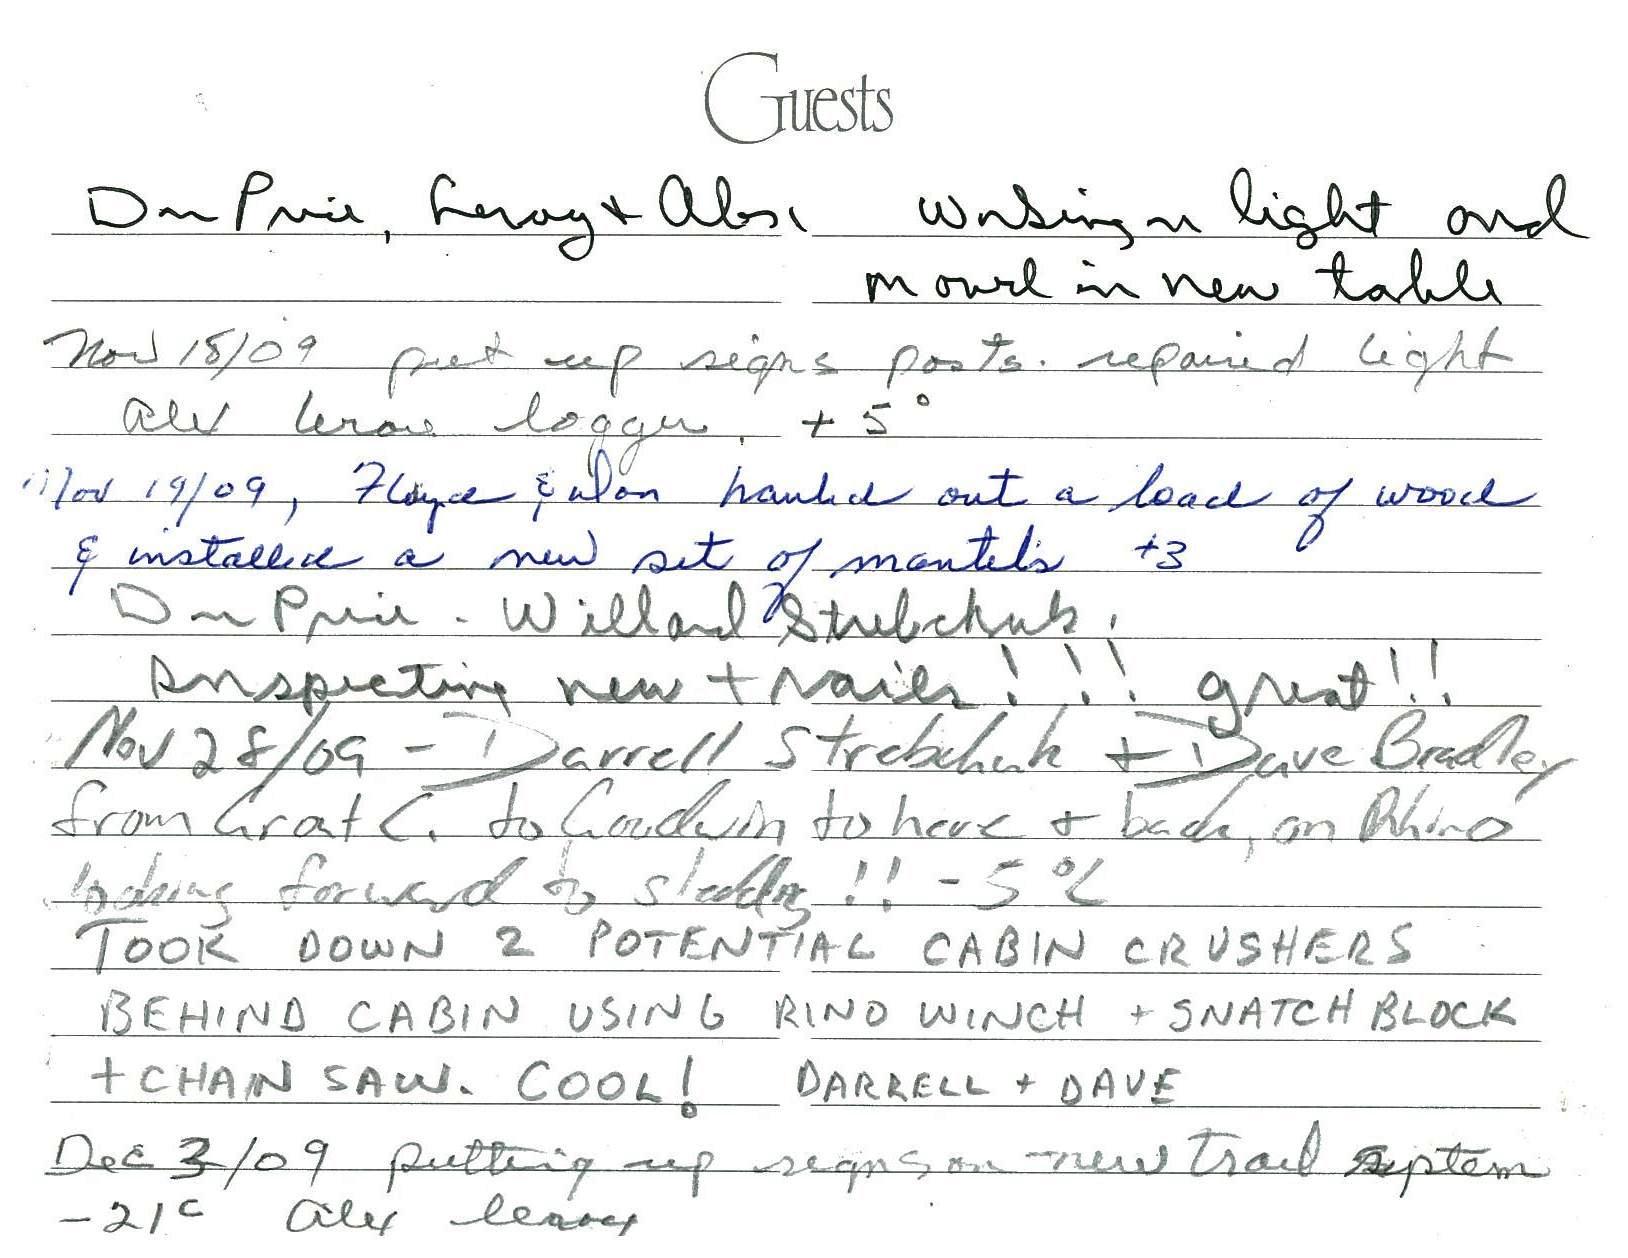 Guests
Don Price, Leroy + Alex working on light and
moved in new table
Nov 18/09 put up signs posts. repaired light
Alex Leroy logger. +5°
Nov 19/09, Floyd & Don hauled out a load of wood
& installed a new set of mantels +3
Don Price - Willard Strebchuk.
Inspecting new trails!!! great!!
Nov 28/09 - Darrell Strebchuk + Dave Bradley
from Grat C. to Goodwin to here + back, on Rhino
looking forward to sledding!! -5°C
TOOK DOWN 2 POTENTIAL CABIN CRUSHERS
BEHIND CABIN USING RINO WINCH + SNATCH BLOCK
+ CHAIN SAW. COOL! DARRELL + DAVE
Dec 3/09 putting up signs on new trail system
-21c Alex Leroy